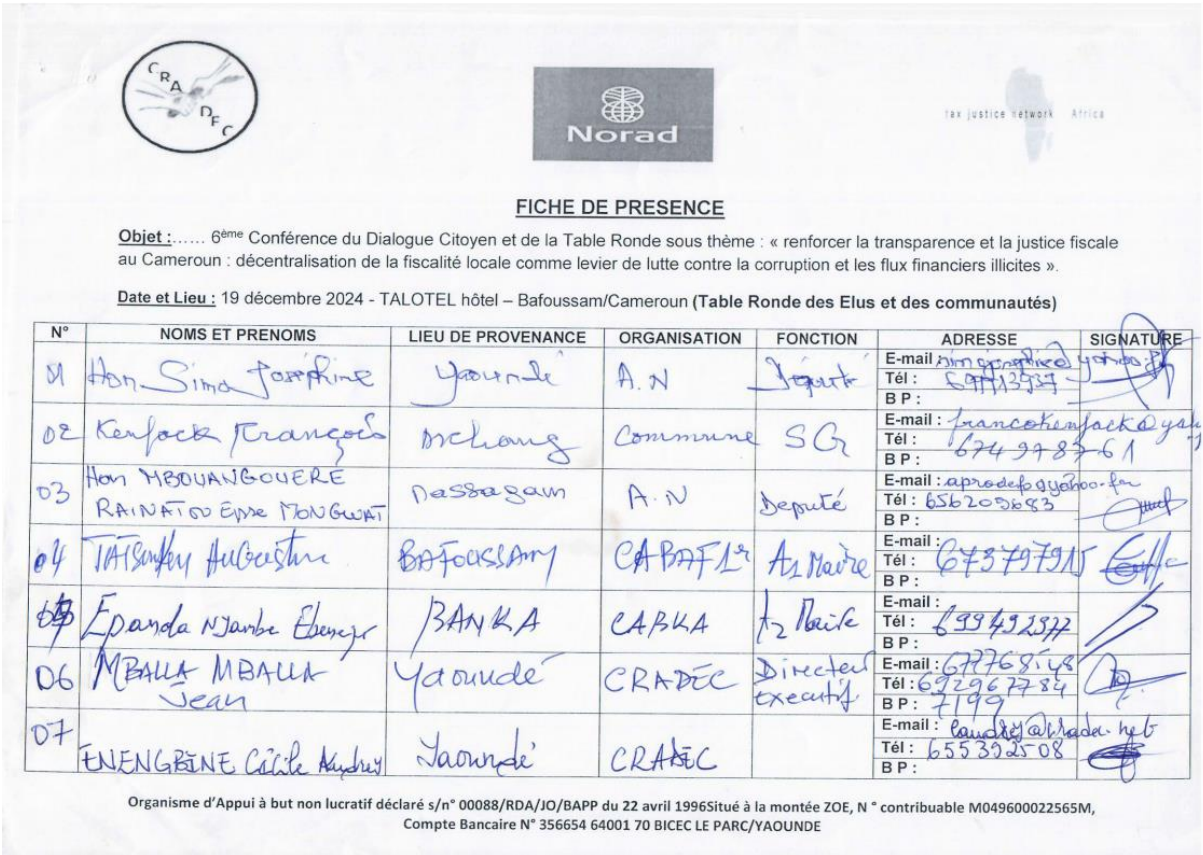 CRADEC
Norad
tax justice network Africa
FICHE DE PRESENCE
Objet :...... 6ème Conférence du Dialogue Citoyen et de la Table Ronde sous thème : « renforcer la transparence et la justice fiscale
au Cameroun : décentralisation de la fiscalité locale comme levier de lutte contre la corruption et les flux financiers illicites ».
Date et Lieu : 19 décembre 2024 - TALOTEL hôtel – Bafoussam/Cameroun (Table Ronde des Elus et des communautés)
N° NOMS ET PRENOMS LIEU DE PROVENANCE ORGANISATION FONCTION ADRESSE SIGNATURE
01 Hon Sima Joséphine Yaoundé A.N Député E-mail :
Tél :
B P :
02 Kenfack François Dschang Commune SG E-mail : francokenfack@
Tél : 674978761
B P :
03 Hon MBOUANGOUERE
RAINATOU Epse MONGWAT A.N Deputé E-mail : aprodefo@yahoo.fr
Tél : 656209683
B P :
04 Augustin BAFOUSSAM CABAF1er A1 Maire E-mail :
Tél : 673797915
B P :
05 Epanda Njambe Ebenezer BANKA CABKA A2 Maire E-mail :
Tél : 699492977
B P :
06 MBALLA MBALLA
Jean Yaoundé CRADEC Directeur
executif E-mail : 677768148
Tél : 692967784
B P : 7199
07 ENENGBINE Cécile Audrey Yaoundé CRADEC E-mail :
Tél : 655392508
B P :
Organisme d'Appui à but non lucratif déclaré s/n° 00088/RDA/JO/BAPP du 22 avril 1996Situé à la montée ZOE, N ° contribuable M049600022565M,
Compte Bancaire N° 356654 64001 70 BICEC LE PARC/YAOUNDE